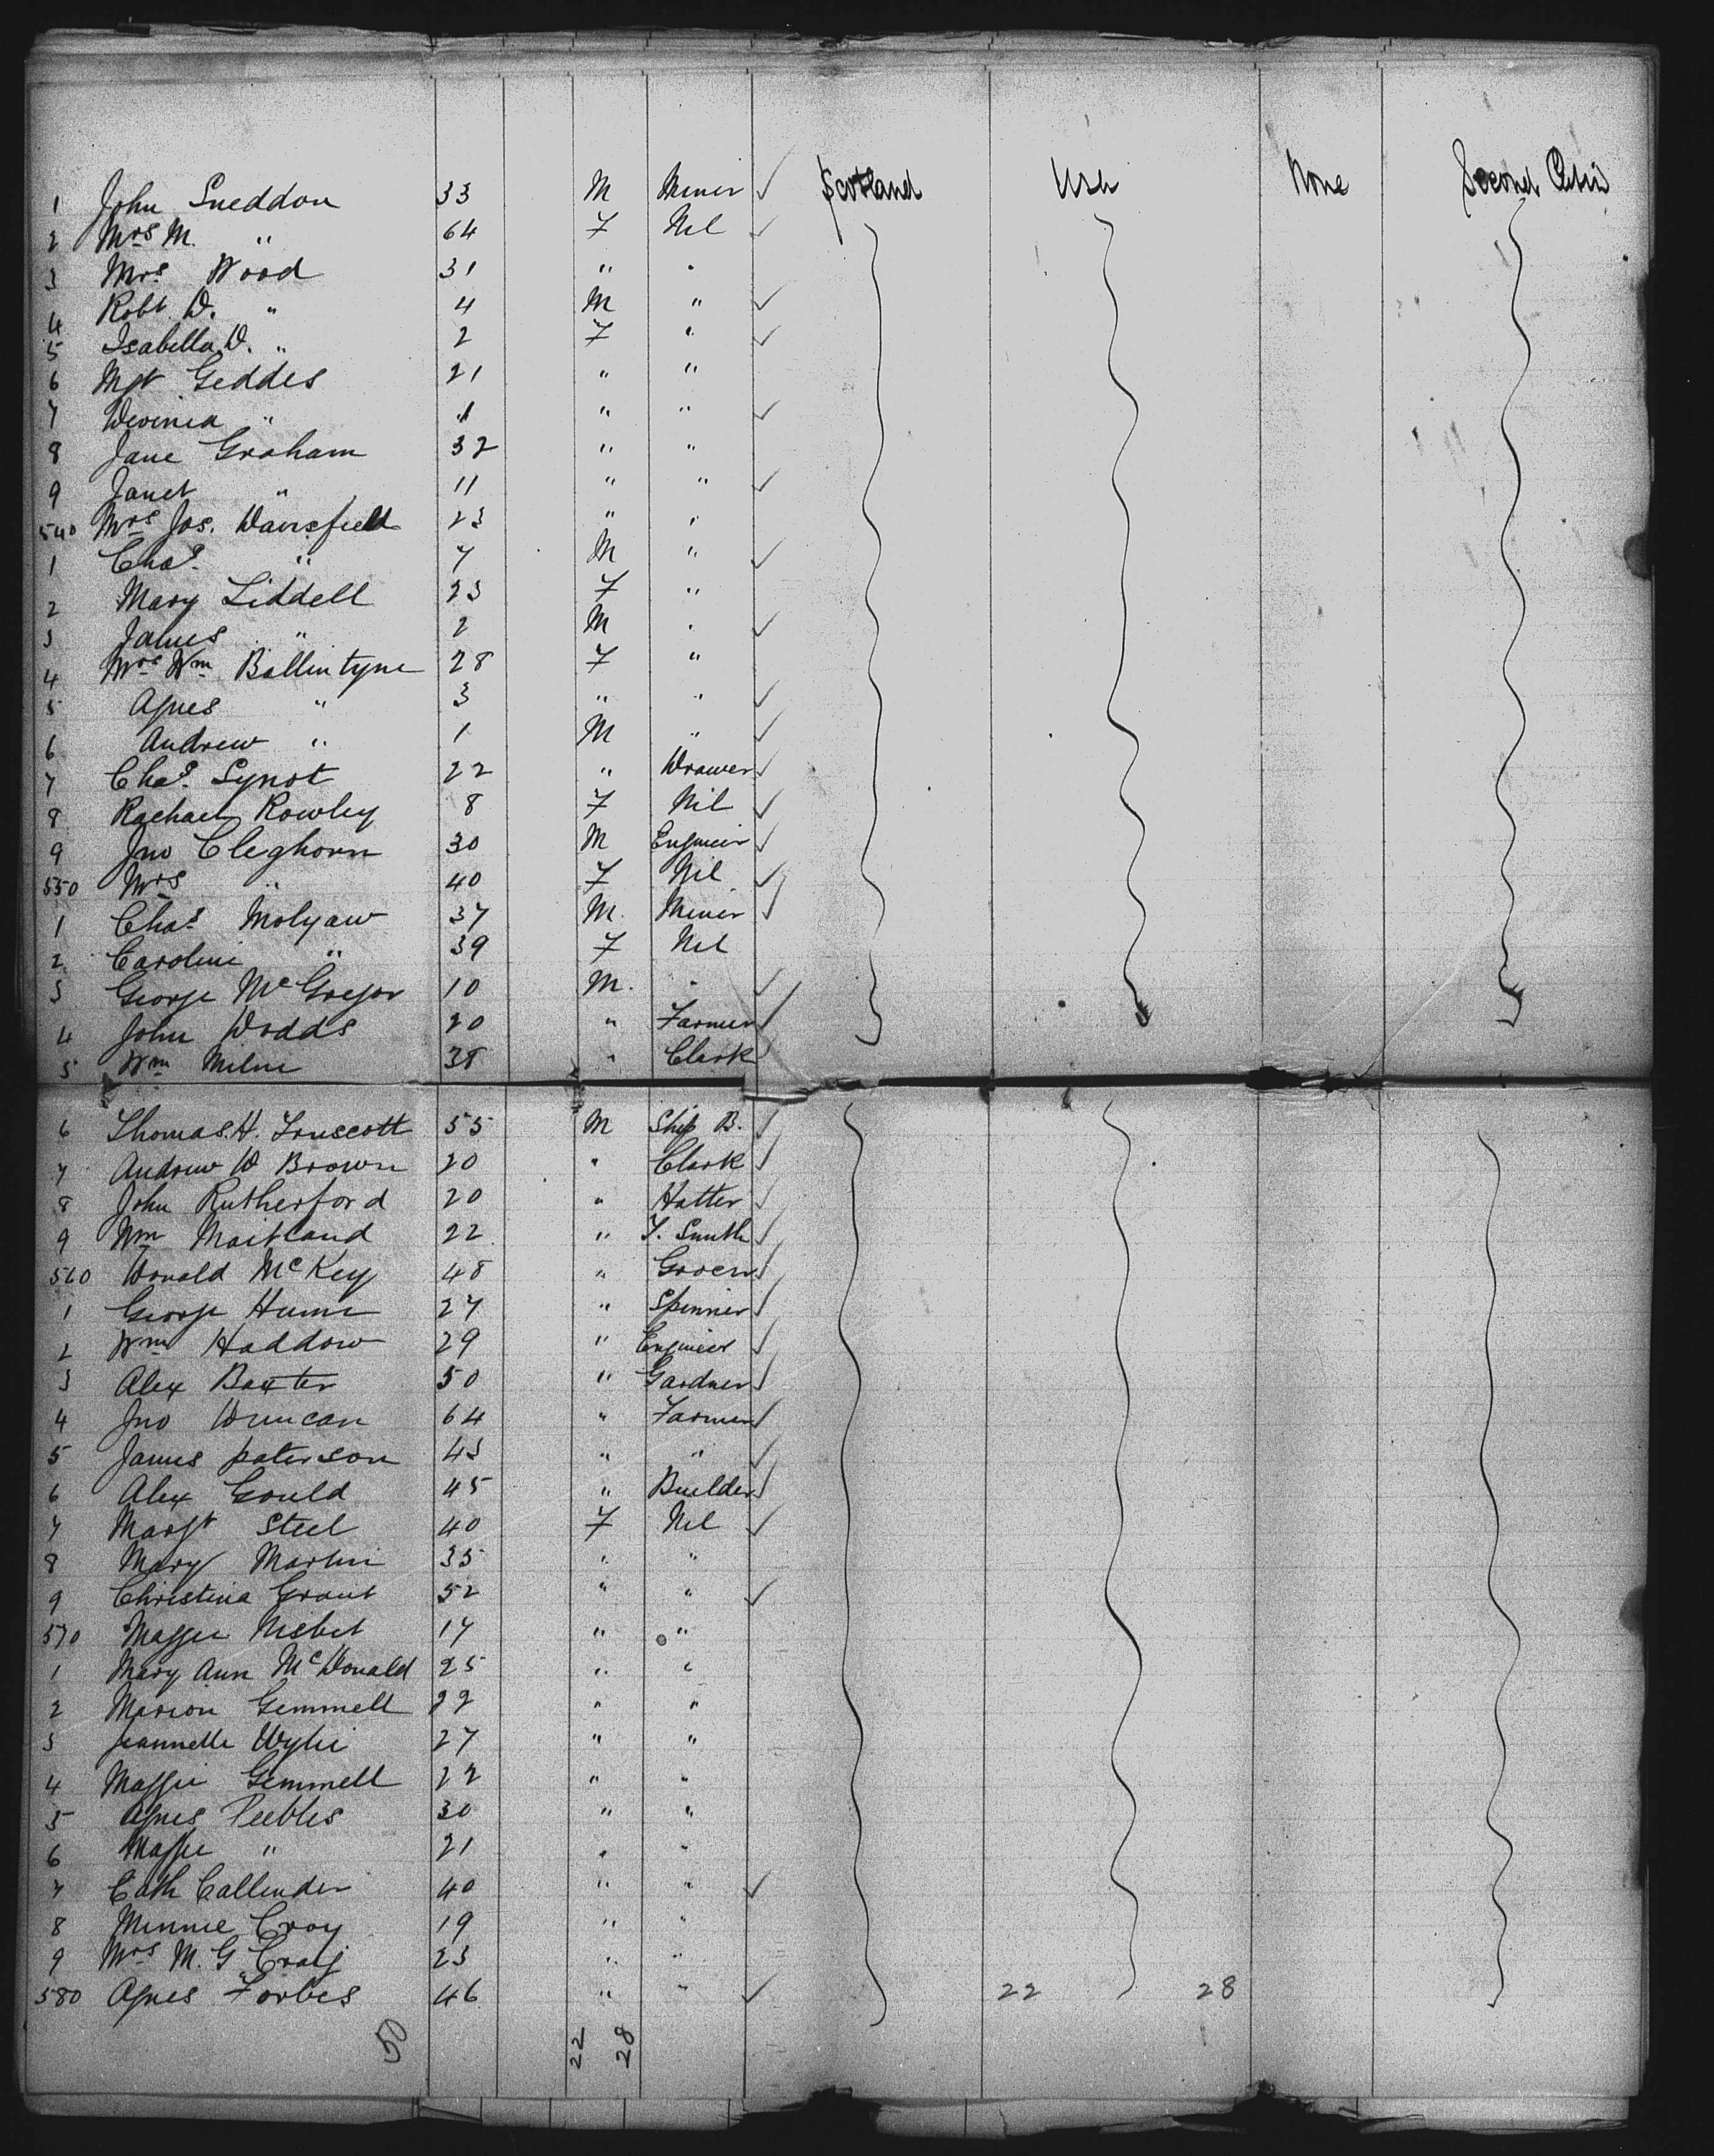 1 John Sneddon 33 M Miner ✓ Scotland USA None Second Cabin
2 Mrs M. " 64 F Nil ✓
3 Mrs Wood 31 " "
4 Robt. D. " 4 M " ✓
5 Isabella D. " 2 F " ✓
6 Mgt Geddes 21 " "
7 " 1 " " ✓
8 Jane Graham 32 " "
9 Janet " 11 " " ✓
540 Mrs Jos. 23 " "
1 Chas. " 7 M " ✓
2 Mary Liddell 23 F "
3 James " 2 M " ✓
4 Mrs Wm Ballintyne 28 F "
5 Agnes " 3 " " ✓
6 Andrew " 1 M " ✓
7 Chas. Synot 22 " Drawer ✓
8 Rachael Rowley 8 F Nil ✓
9 Jno Cleghorn 30 M Engineer ✓
550 Mrs " 40 F Nil ✓
1 Chas. Molyaw 37 M. Miner ✓
2 Caroline " 39 F Nil
3 George McGregor 10 M. " ✓
4 John Dodds 20 " Farmer ✓
5 Wm Milne 38 " Clark
6 Thomas. H. Truscott 55 M Ship B. ✓
7 Andrew D Brown 20 " Clark ✓
8 John Rutherford 20 " Hatter ✓
9 Wm Maitland 22 " T. Smith ✓
560 Donald McKey 48 " Grocer ✓
1 George Hume 27 " Spinner ✓
2 Wm Haddow 29 " Engineer ✓
3 Alex Baxter 50 " Gardner ✓
4 Jno Duncan 64 " Farmer ✓
5 James paterson 43 " " ✓
6 Alex Gould 45 " Builder ✓
7 Margt Steel 40 F Nil ✓
8 Mary Martin 35 " "
9 Christina Grant 52 " " ✓
570 Maggie Nisbet 17 " "
1 Mary Ann McDonald 25 " "
2 Marion Gemmell 22 " "
3 Jeannette Wylie 27 " "
4 Maggie Gemmell 22 " "
5 Agnes Peebles 30 " "
6 Maggie " 21 " "
7 Cath Callender 40 " " ✓
8 Minnie Croy 19 " "
9 Mrs M. G Craig 23 " "
580 Agnes Forbes 46 " " ✓ 22 28
50 22 28